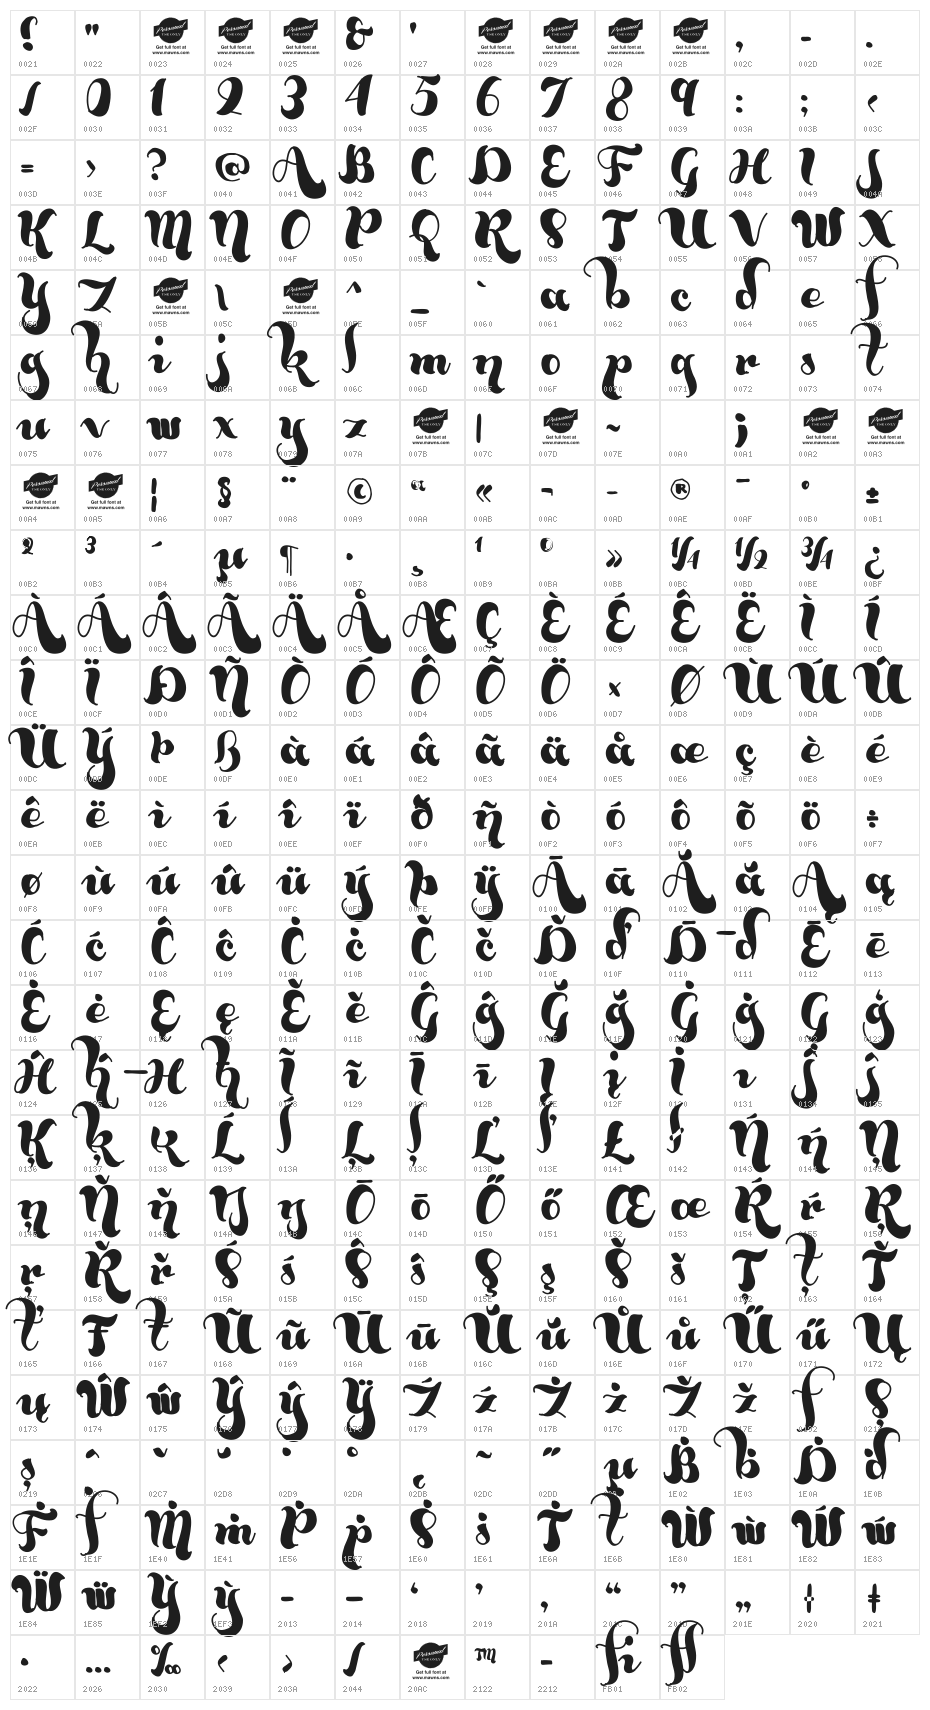 ! " & ' , - .
Personal Personal Personal Personal Personal Personal Personal
USE ONLY USE ONLY USE ONLY USE ONLY USE ONLY USE ONLY USE ONLY
Get full font at Get full font at Get full font at Get full font at Get full font at Get full font at Get full font at
www.mawns.com www.mawns.com www.mawns.com www.mawns.com www.mawns.com www.mawns.com www.mawns.com
0021 0022 0023 0024 0025 0026 0027 0028 0029 002A 002B 002C 002D 002E
/ 0 1 2 3 4 5 6 7 8 9 : ; <
002F 0030 0031 0032 0033 0034 0035 0036 0037 0038 0039 003A 003B 003C
= > ? @ A B C D E F G H I J
003D 003E 003F 0040 0041 0042 0043 0044 0045 0046 0047 0048 0049 004A
K L M N O P Q R S T U V W X
004B 004C 004D 004E 004F 0050 0051 0052 0053 0054 0055 0056 0057 0058
Y Z \ ^ _ ` a b c d e f
Personal Personal
USE ONLY USE ONLY
Get full font at Get full font at
www.mawns.com www.mawns.com
0059 005A 005B 005C 005D 005E 005F 0060 0061 0062 0063 0064 0065 0066
g h i j k l m n o p q r s t
0067 0068 0069 006A 006B 006C 006D 006E 006F 0070 0071 0072 0073 0074
u v w x y z | ~ ¡
Personal Personal Personal Personal
USE ONLY USE ONLY USE ONLY USE ONLY
Get full font at Get full font at Get full font at Get full font at
www.mawns.com www.mawns.com www.mawns.com www.mawns.com
0075 0076 0077 0078 0079 007A 007B 007C 007D 007E 00A0 00A1 00A2 00A3
¦ § ¨ © ª « ¬ - ® ¯ ° ±
Personal Personal
USE ONLY USE ONLY
Get full font at Get full font at
www.mawns.com www.mawns.com
00A4 00A5 00A6 00A7 00A8 00A9 00AA 00AB 00AC 00AD 00AE 00AF 00B0 00B1
² ³ ´ µ ¶ · ¸ ¹ º » ¼ ½ ¾ ¿
00B2 00B3 00B4 00B5 00B6 00B7 00B8 00B9 00BA 00BB 00BC 00BD 00BE 00BF
À Á Â Ã Ä Å Æ Ç È É Ê Ë Ì Í
00C0 00C1 00C2 00C3 00C4 00C5 00C6 00C7 00C8 00C9 00CA 00CB 00CC 00CD
Î Ï Ð Ñ Ò Ó Ô Õ Ö × Ø Ù Ú Û
00CE 00CF 00D0 00D1 00D2 00D3 00D4 00D5 00D6 00D7 00D8 00D9 00DA 00DB
Ü Ý Þ ß à á â ã ä å æ ç è é
00DC 00DD 00DE 00DF 00E0 00E1 00E2 00E3 00E4 00E5 00E6 00E7 00E8 00E9
ê ë ì í î ï ð ñ ò ó ô õ ö ÷
00EA 00EB 00EC 00ED 00EE 00EF 00F0 00F1 00F2 00F3 00F4 00F5 00F6 00F7
ø ù ú û ü ý þ ÿ Ā ā Ă ă Ą ą
00F8 00F9 00FA 00FB 00FC 00FD 00FE 00FF 0100 0101 0102 0103 0104 0105
Ć ć Ĉ ĉ Ċ ċ Č č Ď ď Đ đ Ē ē
0106 0107 0108 0109 010A 010B 010C 010D 010E 010F 0110 0111 0112 0113
Ė ė Ę ę Ě ě Ĝ ĝ Ğ ğ Ġ ġ Ģ ģ
0116 0117 0118 0119 011A 011B 011C 011D 011E 011F 0120 0121 0122 0123
Ĥ ĥ Ħ ħ Ĩ ĩ Ī ī Į į İ ı Ĵ ĵ
0124 0125 0126 0127 0128 0129 012A 012B 012E 012F 0130 0131 0134 0135
Ķ ķ ĸ Ĺ ĺ Ļ ļ Ľ ľ Ł ł Ń ń Ņ
0136 0137 0138 0139 013A 013B 013C 013D 013E 0141 0142 0143 0144 0145
ņ Ň ň Ŋ ŋ Ō ō Ő ő Œ œ Ŕ ŕ Ŗ
0146 0147 0148 014A 014B 014C 014D 0150 0151 0152 0153 0154 0155 0156
ŗ Ř ř Ś ś Ŝ ŝ Ş ş Š š Ţ ţ Ť
0157 0158 0159 015A 015B 015C 015D 015E 015F 0160 0161 0162 0163 0164
ť Ŧ ŧ Ũ ũ Ū ū Ŭ ŭ Ů ů Ű ű Ų
0165 0166 0167 0168 0169 016A 016B 016C 016D 016E 016F 0170 0171 0172
ų Ŵ ŵ Ŷ ŷ Ÿ Ź ź Ż ż Ž ž ƒ Ș
0173 0174 0175 0176 0177 0178 0179 017A 017B 017C 017D 017E 0192 0218
ș ˆ ˇ ˘ ˙ ˚ ˛ ˜ ˝ μ Ḃ ḃ Ḋ ḋ
0219 02C6 02C7 02D8 02D9 02DA 02DB 02DC 02DD 03BC 1E02 1E03 1E0A 1E0B
Ḟ ḟ Ṁ ṁ Ṗ ṗ Ṡ ṡ Ṫ ṫ Ẁ ẁ Ẃ ẃ
1E1E 1E1F 1E40 1E41 1E56 1E57 1E60 1E61 1E6A 1E6B 1E80 1E81 1E82 1E83
Ẅ ẅ Ỳ ỳ – — ‘ ’ ‚ “ ” „ † ‡
1E84 1E85 1EF2 1EF3 2013 2014 2018 2019 201A 201C 201D 201E 2020 2021
• … ‰ ‹ › ⁄ ™ − fi fl
Personal
USE ONLY
Get full font at
www.mawns.com
2022 2026 2030 2039 203A 2044 20AC 2122 2212 FB01 FB02